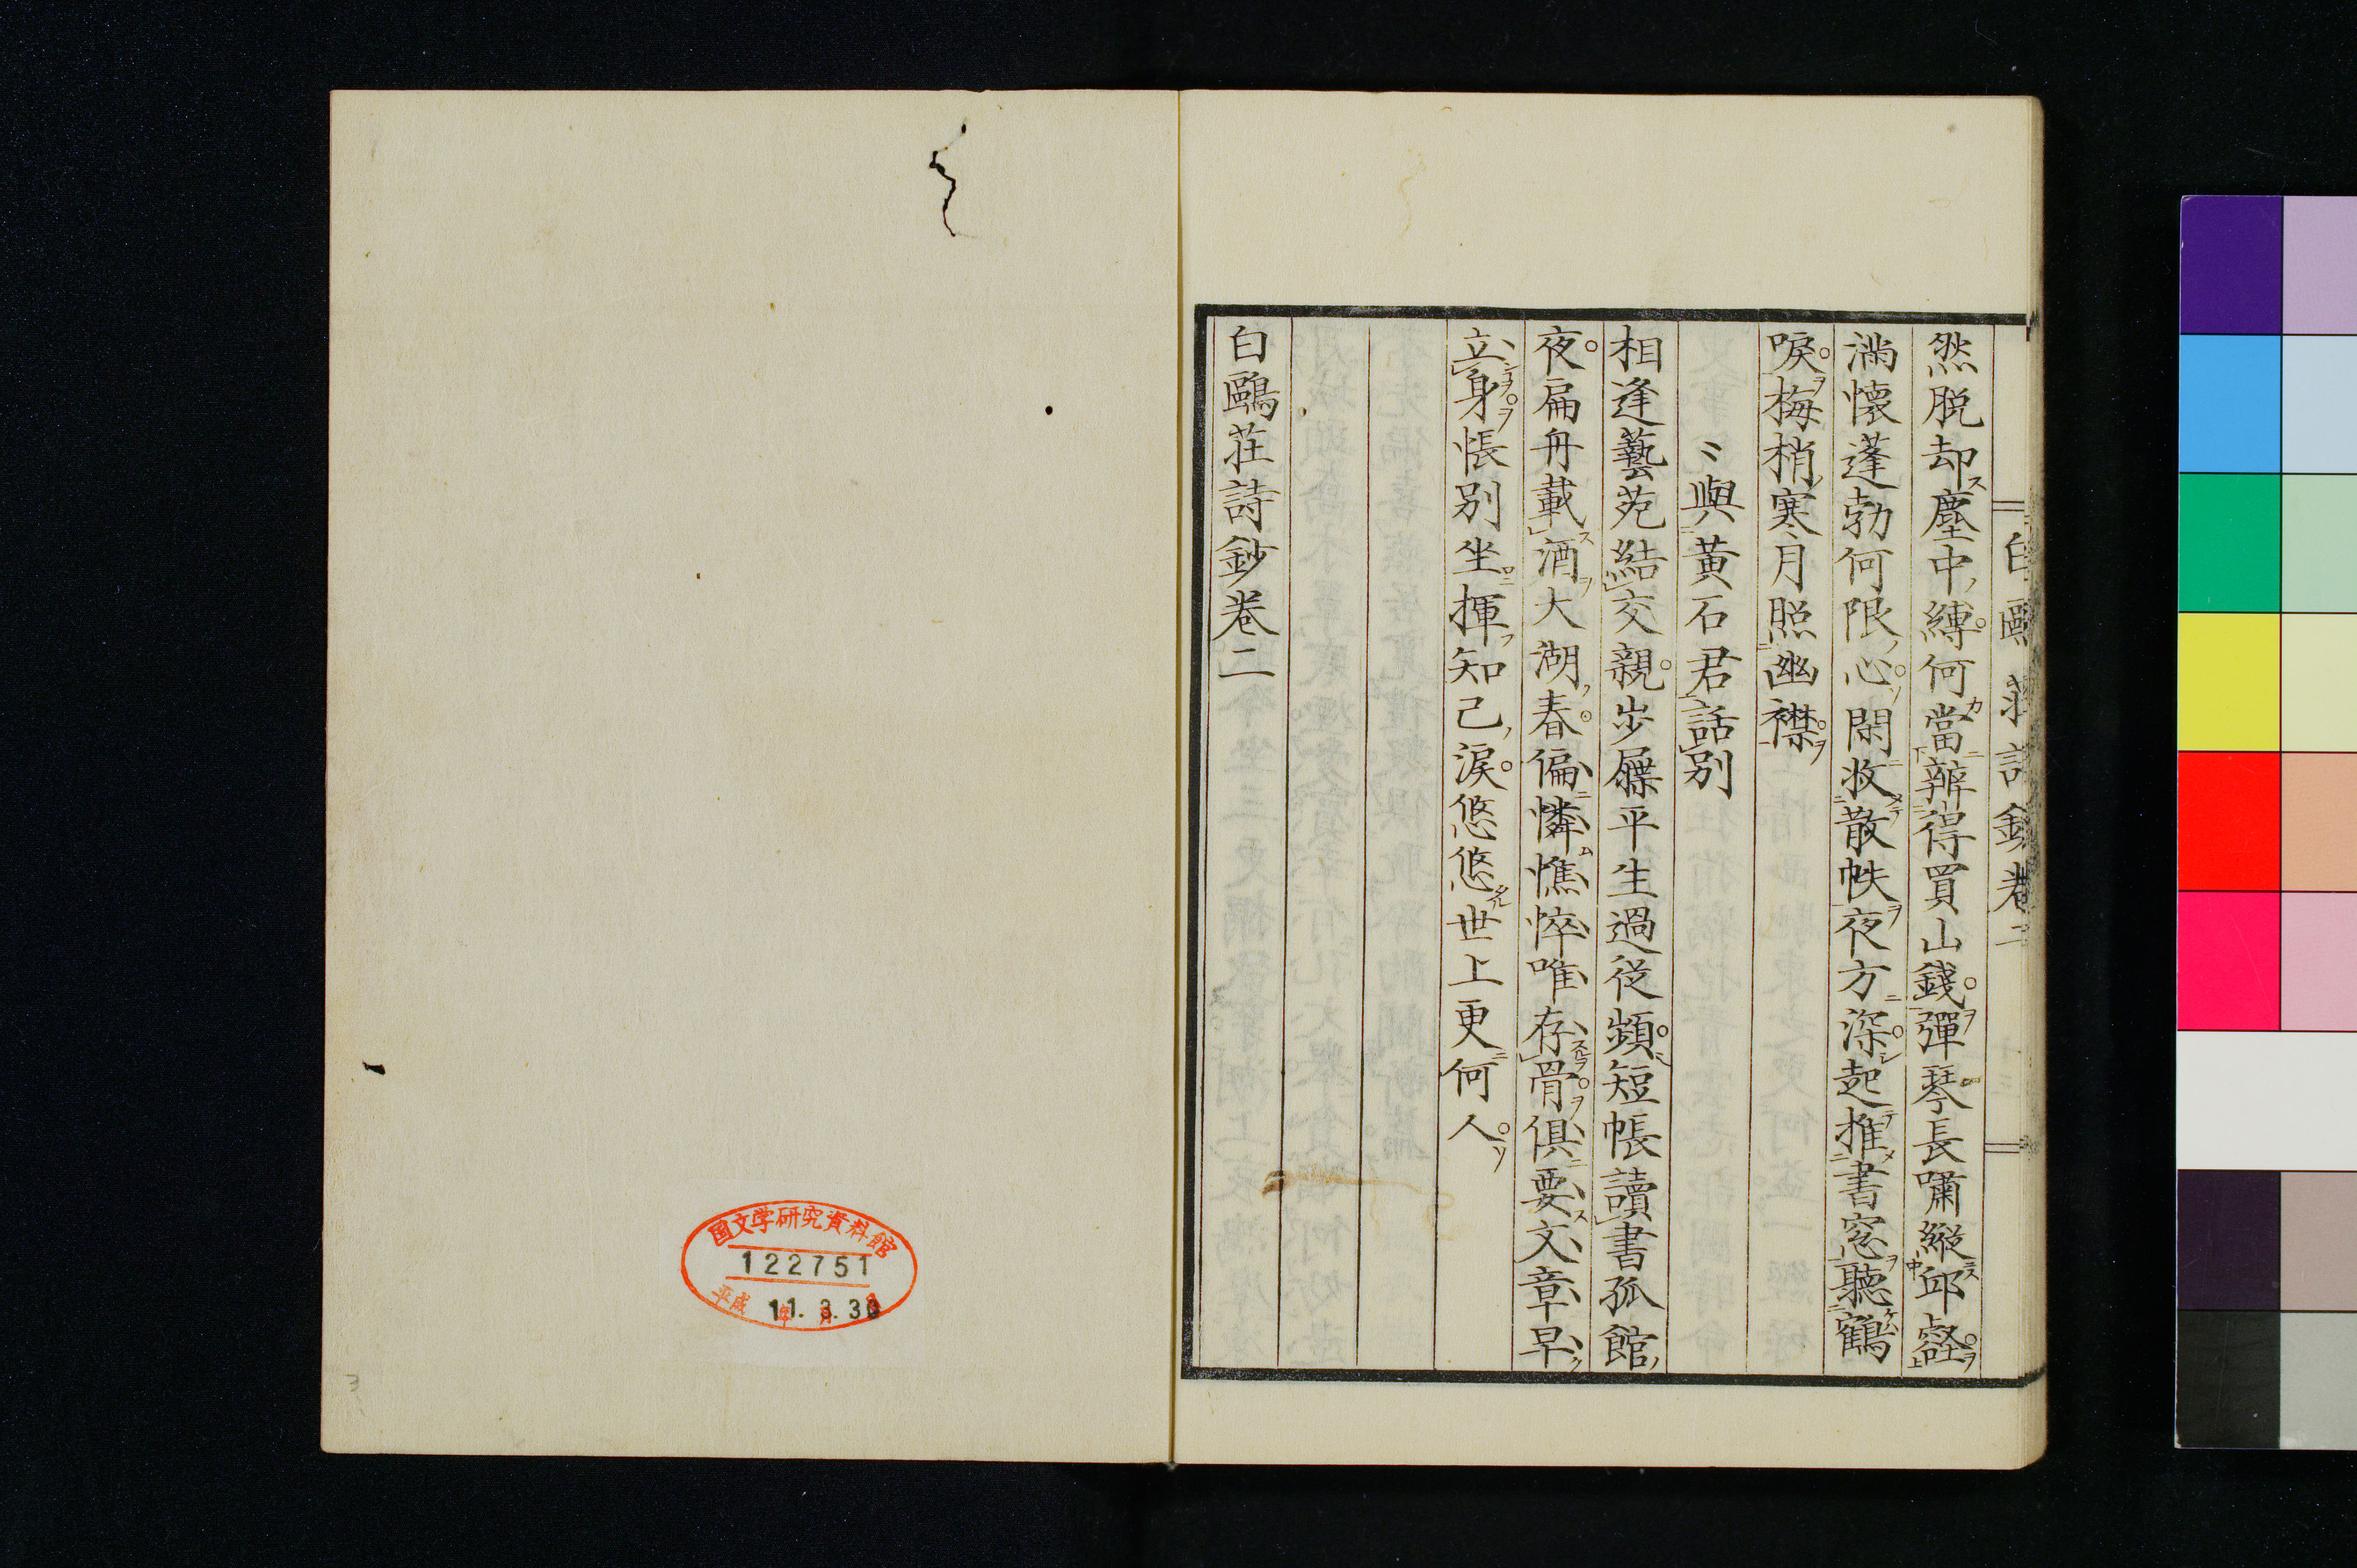 白鷗莊詩鈔卷二
然脱却塵中縛何當辨得買山錢彈琴長嘯縱邱壑
滿懷蓬勃何限心閑收散帙夜方深起推書窓聽鶴
唳梅梢寒月照幽襟
〻與黃石君話別
相逢藝苑結交親步屧平生過從頻短帳讀書孤館
夜扁舟載酒大湖春偏憐憔悴唯存骨俱要文章早
立身悵別坐揮知己淚悠悠世上更何人
白鷗莊詩鈔卷二
国文学研究資料館
122751
平成 11年 3月 30日
3